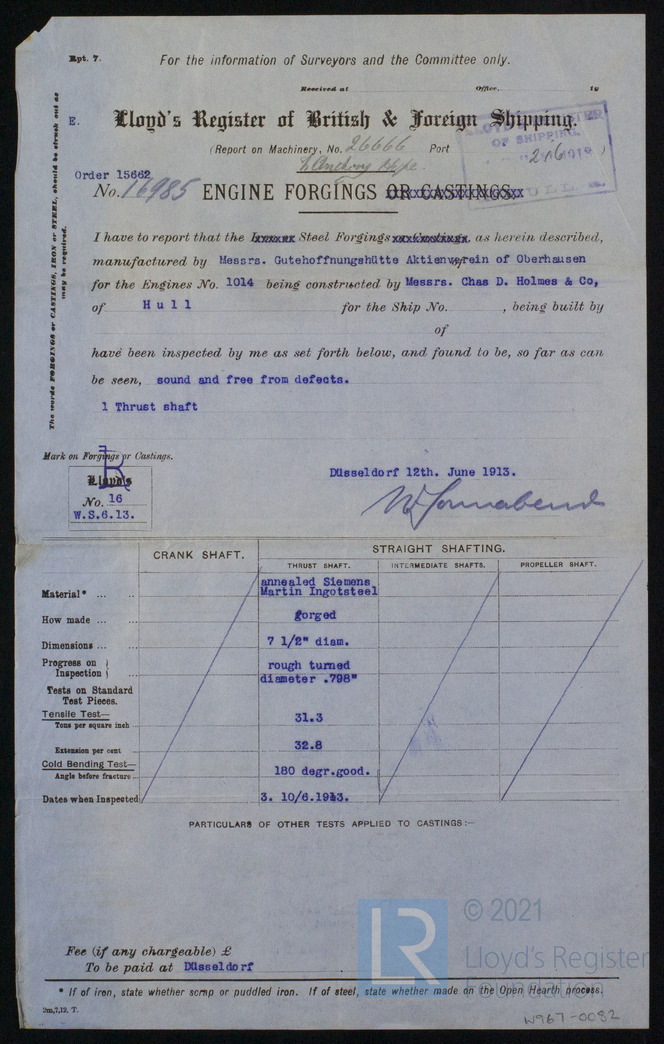 Rpt. 7.
For the information of Surveyors and the Committee only.
Received at Office, 19
E.
Lloyd's Register of British & Foreign Shipping.
(Report on Machinery, No. 26666 Port
LLOYD'S REGISTER
OF SHIPPING.
HULL
Order 15662
No. 16985 ENGINE FORGINGS OR CASTINGS.
The words FORGINGS or CASTINGS, IRON or STEEL, should be struck out as
may be required.
I have to report that the Steel Forgings as herein described,
manufactured by Messrs. Gutehoffnungshütte Aktienverein of Oberhausen
for the Engines No. 1014 being constructed by Messrs. Chas D. Holmes & Co,
of Hull for the Ship No. , being built by
of
have been inspected by me as set forth below, and found to be, so far as can
be seen, sound and free from defects.
1 Thrust shaft
Mark on Forgings or Castings.
Lloyd's
No. 16
W.S.6.13.
Düsseldorf 12th. June 1913.
W. Sonnabend
CRANK SHAFT.
STRAIGHT SHAFTING.
THRUST SHAFT. INTERMEDIATE SHAFTS. PROPELLER SHAFT.
Material* ... .. annealed Siemens
Martin Ingotsteel
How made ... .. gorged
Dimensions ... .. 7 1/2" diam.
Progress on
Inspection rough turned
diameter .798"
Tests on Standard
Test Pieces.
Tensile Test—
Tons per square inch 31.3
Extension per cent 32.8
Cold Bending Test—
Angle before fracture 180 degr.good.
Dates when Inspected 3. 10/6.1913.
PARTICULARS OF OTHER TESTS APPLIED TO CASTINGS:—
Fee (if any chargeable) £
To be paid at Düsseldorf
* If of iron, state whether scrap or puddled iron. If of steel, state whether made on the Open Hearth process.
2m,7,12. T.
W967-0082
LR
© 2021
Lloyd's Register
Foundation